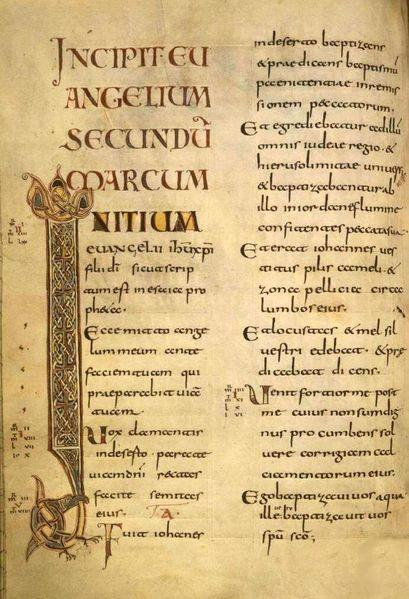 INCIPIT EU
ANGELIUM
SECUNDŪ
MARCUM
INITIUM
euangelii ihū xpi
filii dī sicut scrip
tum est in esaia pro
pheta.
Ecce mitto ange
lum meum ante
faciem tuam qui
praeparabit uiam
tuam.
Uox clamantis
in deserto parate
uiam dnī rectas
facite semitas
eius.
Fuit iohannes
in deserto baptizans
& praedicans baptismū
paenitentiae in remis
sionem peccatorum.
Et egrediebatur ad illū
omnis iudeae regio. &
hierusolimitae uniuersi
& baptizabantur ab
illo in iordane flumine
confitentes peccata sua.
Et erat iohannes ues
titus pilis cameli. &
zona pellicia circa
lumbos eius.
Et locustas & mel sil
uestri edebat. & prę
dicabat dicens.
Uenit fortior me post
me cuius non sum dig
nus procumbens sol
uere corrigiam cal
ciamentorum eius.
Ego baptizaui uos aqua
ille baptizauit uos
spū scō;